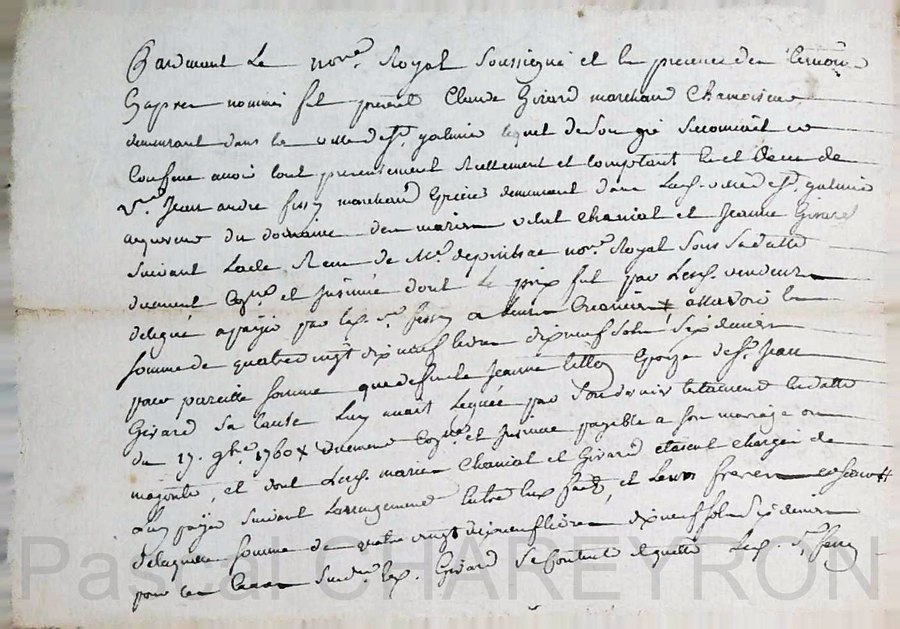 Pardevant Le no.re Royal soussigné et en presence des temoins
bapres nommés fut present Claude Girard marchand Chamoiseur
demeurant dans la ville de S.t galmier lequel de son gré reconnoit et
Confesse avoir tout presentement reellement et Comptant Receu de
s.r Jean andre fessy marchand epicier demeurant dans lad. ville de S.t galmier
acquereur du domaine des maries vidal Chanial et Jeanne Girard
suivant Lacte Receu de M.e no.re Royal sous sa datte
duement Con.lé et Jnsinué dont le prix fut par Lesd. vendeurs
delegué a payer par led. s.r fessy a leurs Creanciers + assavoir la
somme de quatre vingt dix neuf livres dix neuf sols six deniers
pour pareille somme que deffunte Jeanne epouze de S.r Jean
Girard sa tante Luy avait Leguée par son dernier testament en datte
du 17. 9b.re 1760 + duement Con.lé et Jnsinué payable a son mariage ou
majorité, et dont Lesd. maries Chanial et Girard etaient charges de
a luy payer suivant Larrangement entre eux fait, et Leurs freres #
delaquelle somme de quatre vingt dix neuf livres dix neuf sols six deniers
pour les Causes susd. led. Girard se Contente et quitte Led. S.r fessy
Pascal CHAREYRON